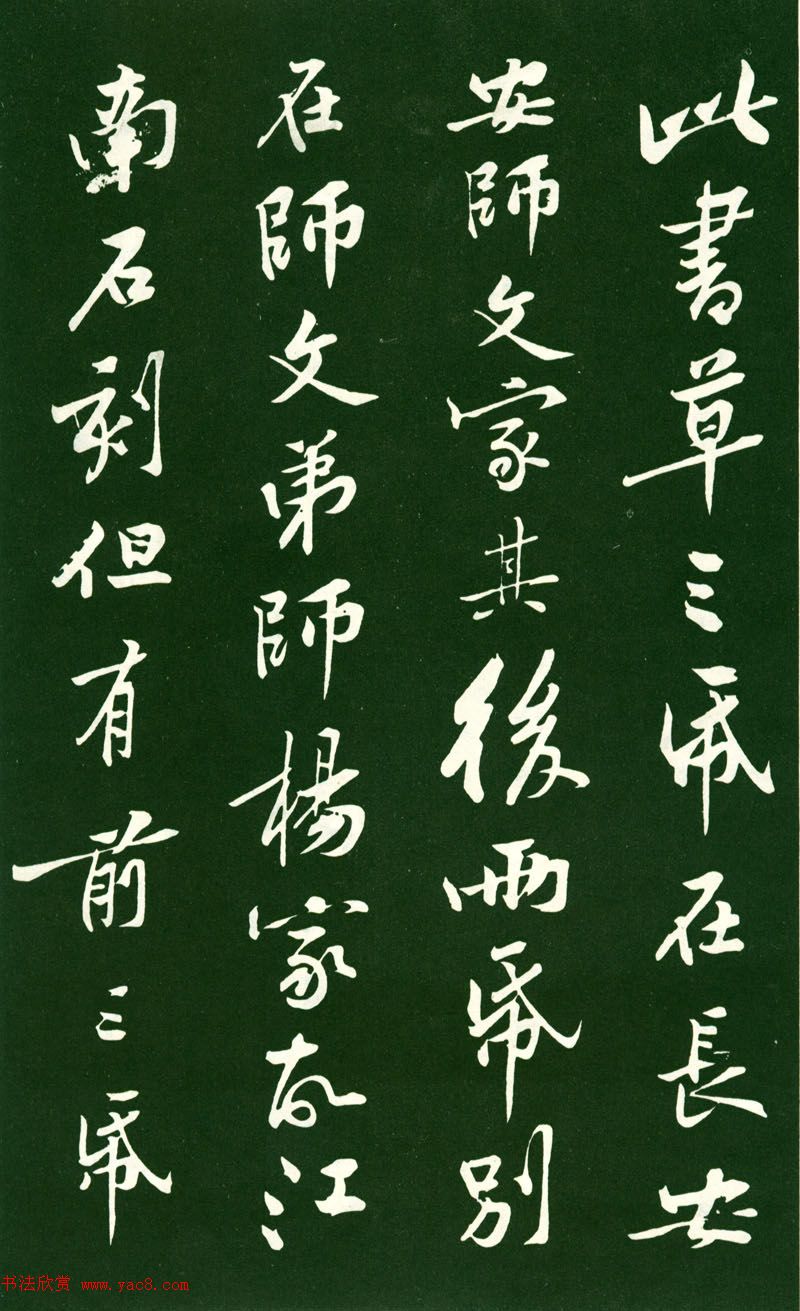 此書草三紙在長安
安師文家其後兩紙別
在師文弟師楊家故江
南石刻但有前三紙
书法欣赏 www.yac8.com